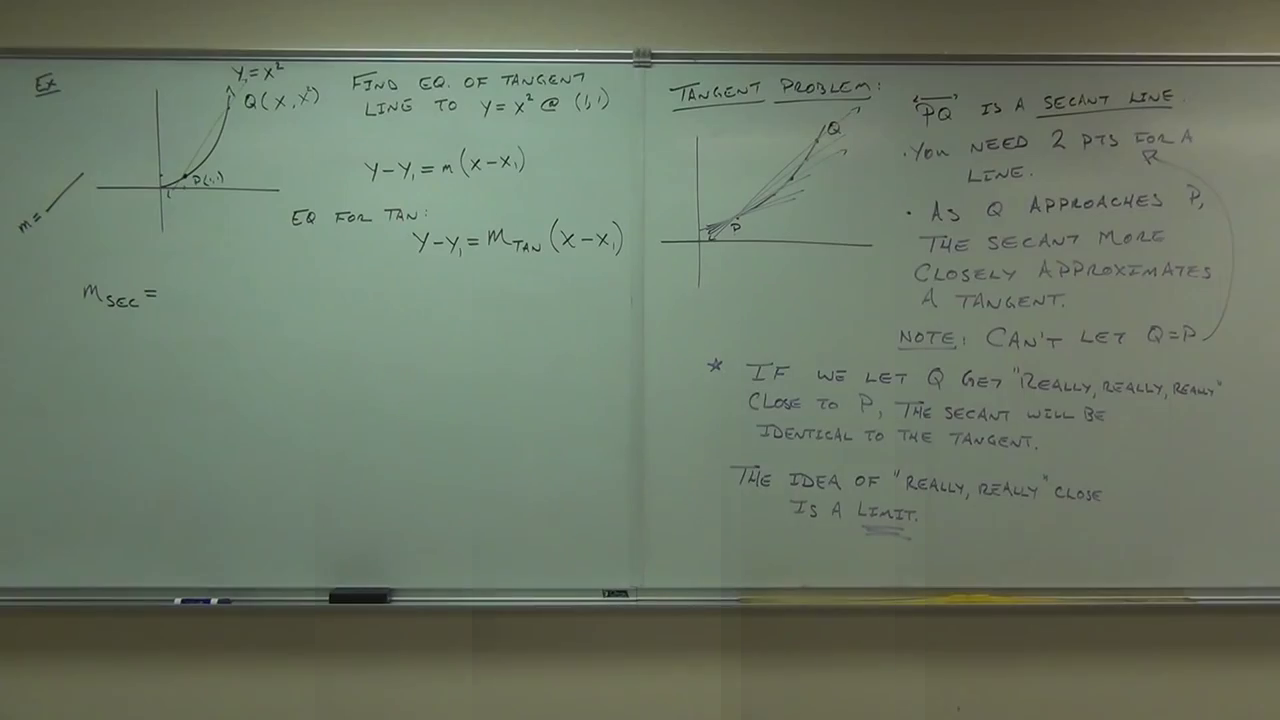 Ex
Y=X²
Q(X,X²)
P(1,1)
1
m=
FIND EQ. OF TANGENT
LINE TO Y=X² @ (1,1)
Y-Y₁=m(X-X₁)
EQ FOR TAN:
Y-Y₁=m_TAN(X-X₁)
m_SEC=
TANGENT PROBLEM:
Q
P
"PQ" IS A SECANT LINE
·YOU NEED 2 PTS FOR A
LINE.
· AS Q APPROACHES P,
THE SECANT MORE
CLOSELY APPROXIMATES
A TANGENT.
NOTE: CAN'T LET Q=P
* IF WE LET Q GET "REALLY, REALLY, REALLY"
CLOSE TO P, THE SECANT WILL BE
IDENTICAL TO THE TANGENT.
THE IDEA OF "REALLY, REALLY" CLOSE
IS A LIMIT.